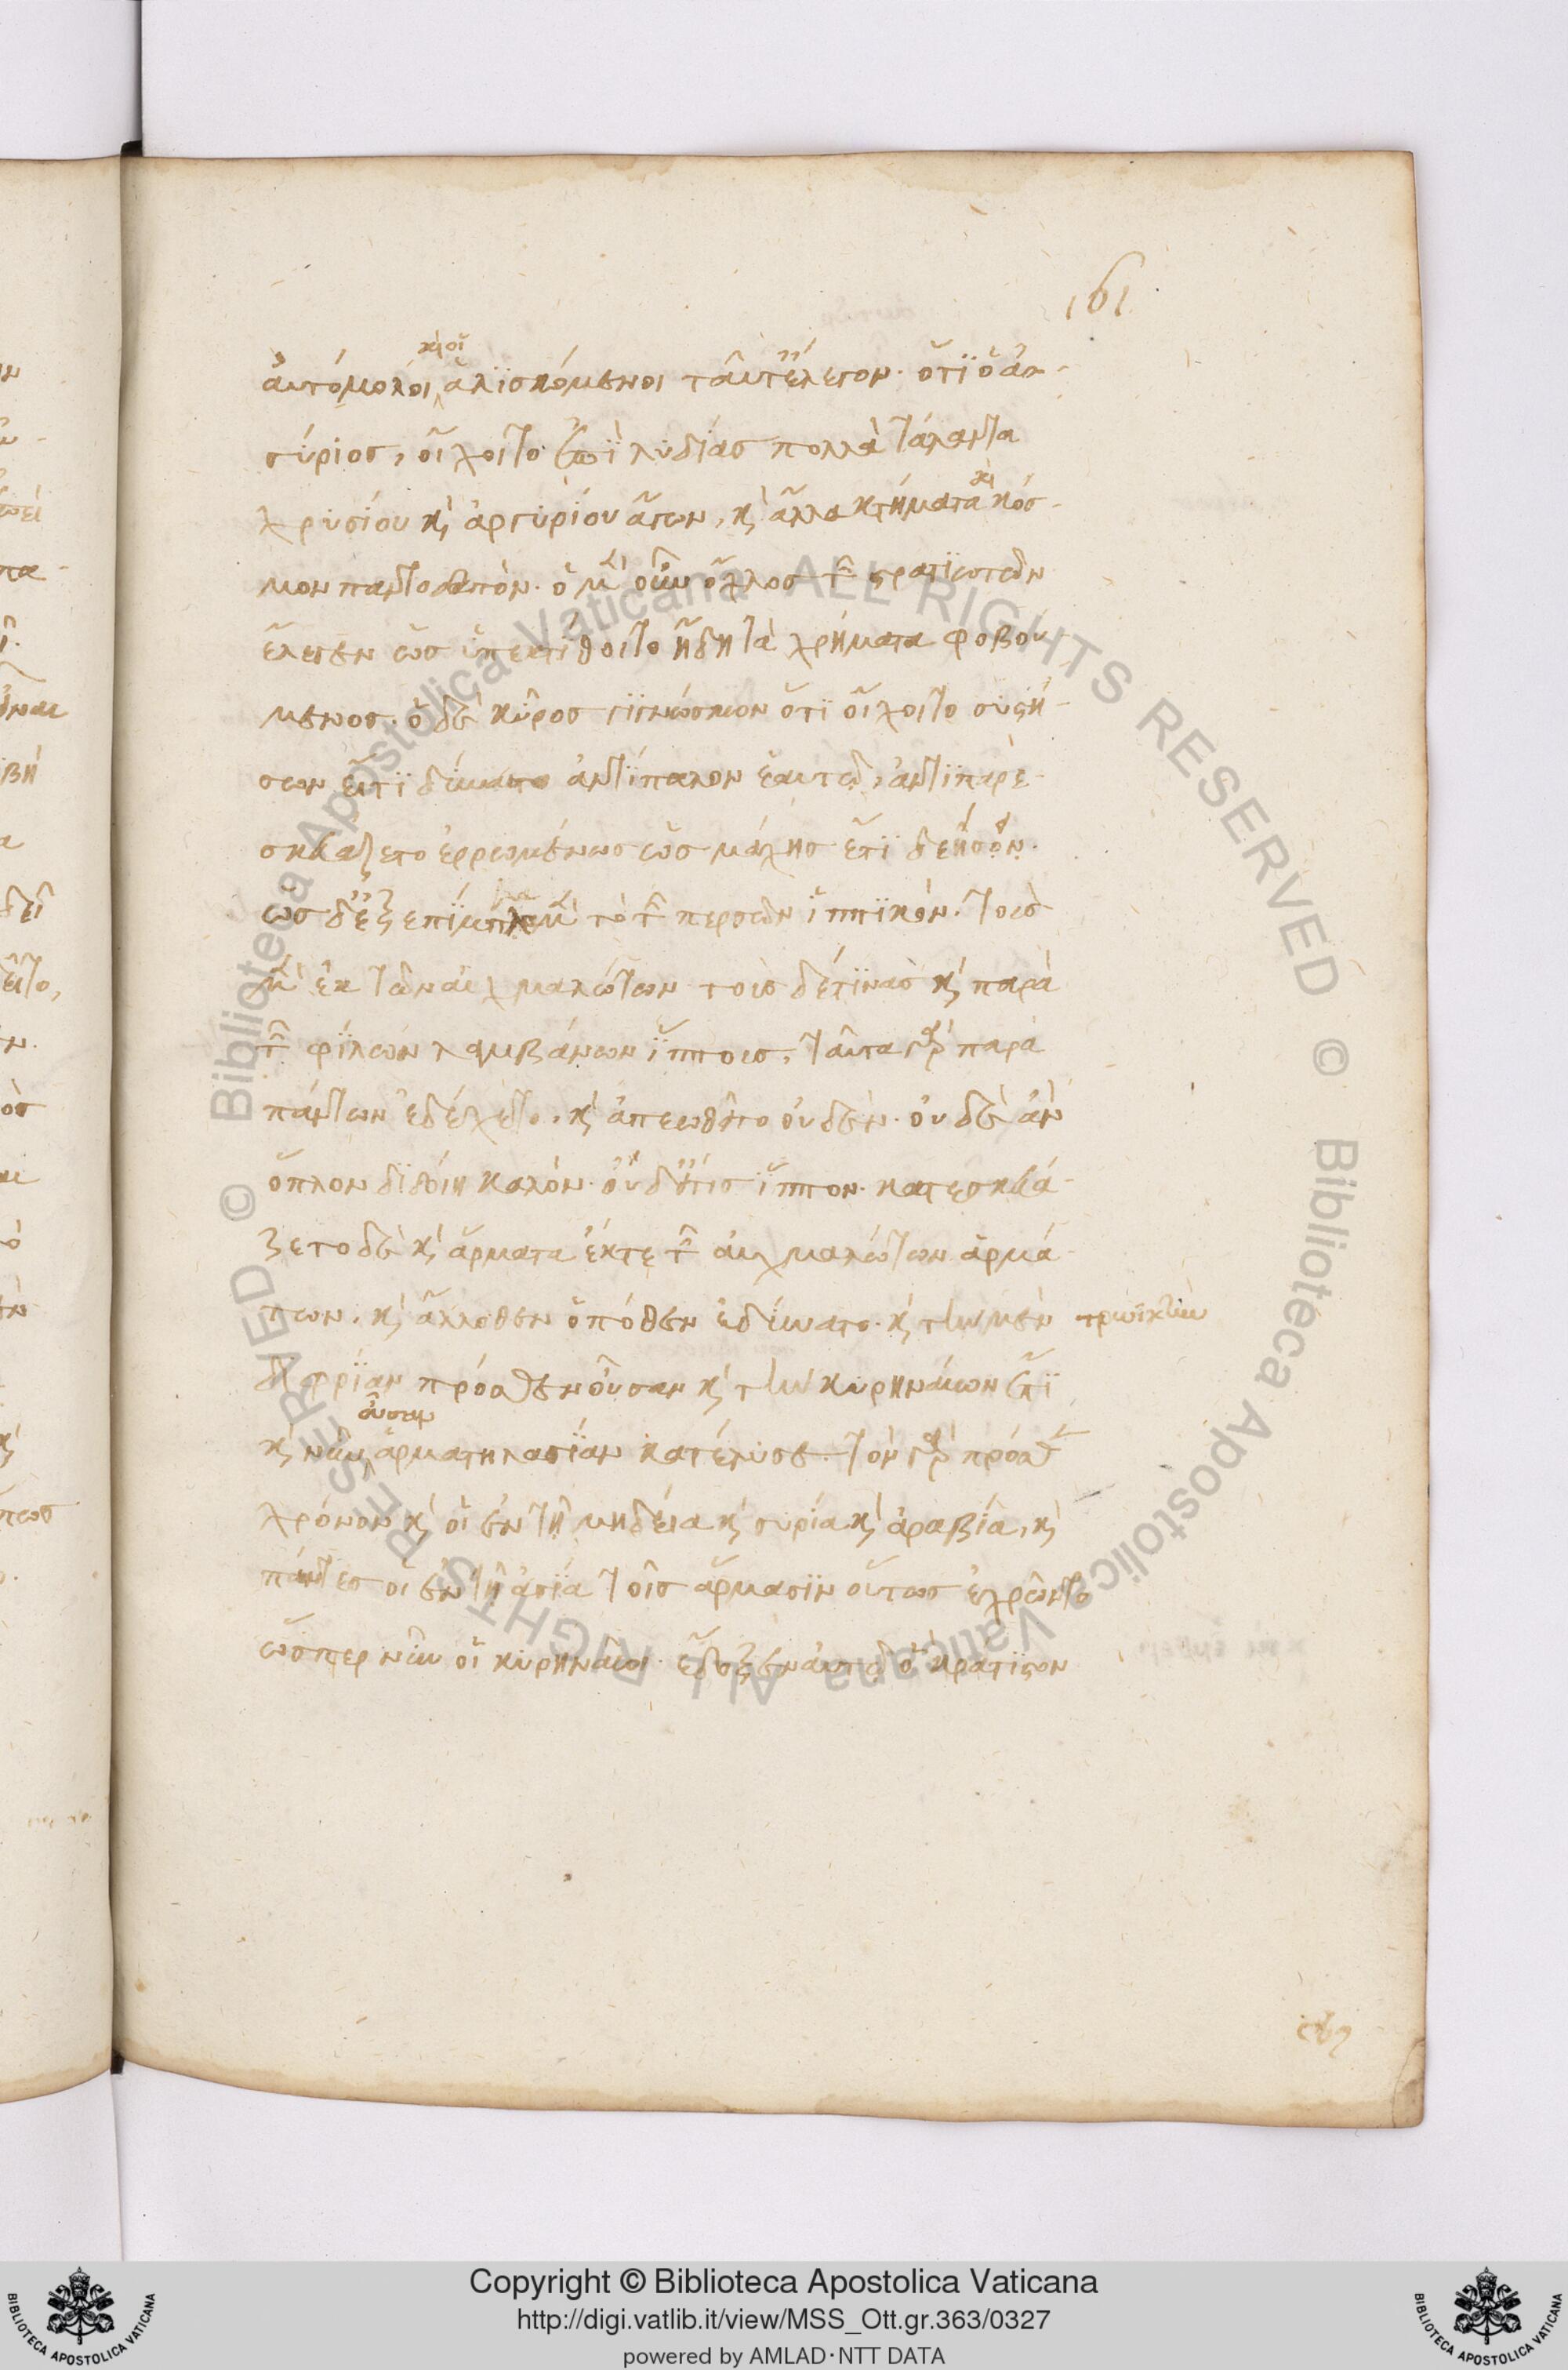 161
αὐτόμολοι καὶ οἱ ἁλισκόμενοι ταῦτ' ἔλεγον. ὅτι ὁ ἀσ-
σύριος, οἴχοιτο ἐπὶ λυδίας πολλὰ τάλαντα
χρυσίου καὶ ἀργυρίου ἄγων, καὶ ἄλλα κτήματα καὶ κόσ-
μον παντοδαπόν. ὁ μὲν οὖν ὄχλος τῶν στρατιωτῶν
ἔλεγεν ὡς ὑπεκτίθοιτο ἤδη τὰ χρήματα φοβού-
μενος. ὁ δὲ κῦρος γιγνώσκων ὅτι οἴχοιτο συστή-
σων εἴ τι δύναιτο ἀντίπαλον ἑαυτῷ, ἀντιπαρε-
σκευάζετο ἐρρωμένως ὡς μάχης ἔτι δεῆσον.
ὡς δ' ἐξεπίμπλη μὲν τὸ τῶν περσῶν ἱππικόν. τοὺς
μὲν ἐκ τῶν αἰχμαλώτων τοὺς δέ τινας καὶ παρὰ
τῶν φίλων λαμβάνων ἵππους, ταῦτα γὰρ παρὰ
πάντων ἐδέχετο, καὶ ἀπεωθεῖτο οὐδέν. οὐδὲ ἂν
ὅπλον διδοίη καλόν. οὐδ' εἴ τις ἵππον. κατεσκευά-
ζετο δὲ καὶ ἅρματα ἔκ τε τῶν αἰχμαλώτων ἁρμά-
των, καὶ ἄλλοθεν ὁπόθεν ἐδύνατο. καὶ τὴν μὲν τρωϊκὴν
διφρίαν πρόσθεν οὖσαν καὶ τὴν κυρηναίων ἔτι
καὶ νῦν οὖσαν ἁρματηλασίαν κατέλυσε. τὸν γὰρ πρόσθεν
χρόνον καὶ οἱ ἐν τῇ μηδεία καὶ συρία καὶ ἀραβία, καὶ
πάντες οἱ ἐν τῇ ἀσία τοῖς ἅρμασιν οὕτως ἐχρῶντο
ὥσπερ νῦν οἱ κυρηναῖοι. ἔδοξεν αὐτῷ ὃ κράτιστον
© Biblioteca Apostolica Vaticana ALL RIGHTS RESERVED © Biblioteca Apostolica Vaticana ALL RIGHTS RESERVED
Copyright © Biblioteca Apostolica Vaticana
http://digi.vatlib.it/view/MSS_Ott.gr.363/0327
powered by AMLAD·NTT DATA
BIBLIOTECA APOSTOLICA VATICANA
BIBLIOTECA APOSTOLICA VATICANA